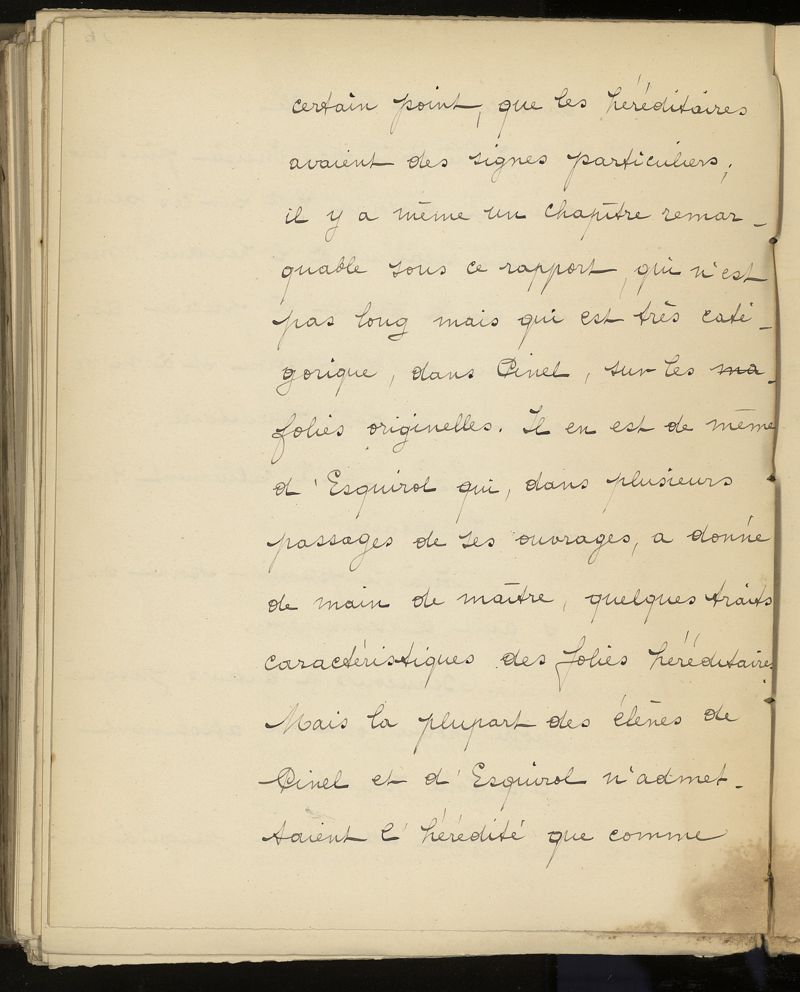 certain point, que les héréditaires
avaient des signes particuliers;
il y a même un chapître remar-
quable sous ce rapport, qui n'est
pas long mais qui est très caté-
gorique, dans Pinel, sur les ma-
folies originelles. Il en est de même
d'Esquirol qui, dans plusieurs
passages de ses ouvrages, a donné
de main de maître, quelques traits
caractéristiques des folies héréditaires
Mais la plupart des élèves de
Pinel et d'Esquirol n'admet-
taient l'hérédité que comme